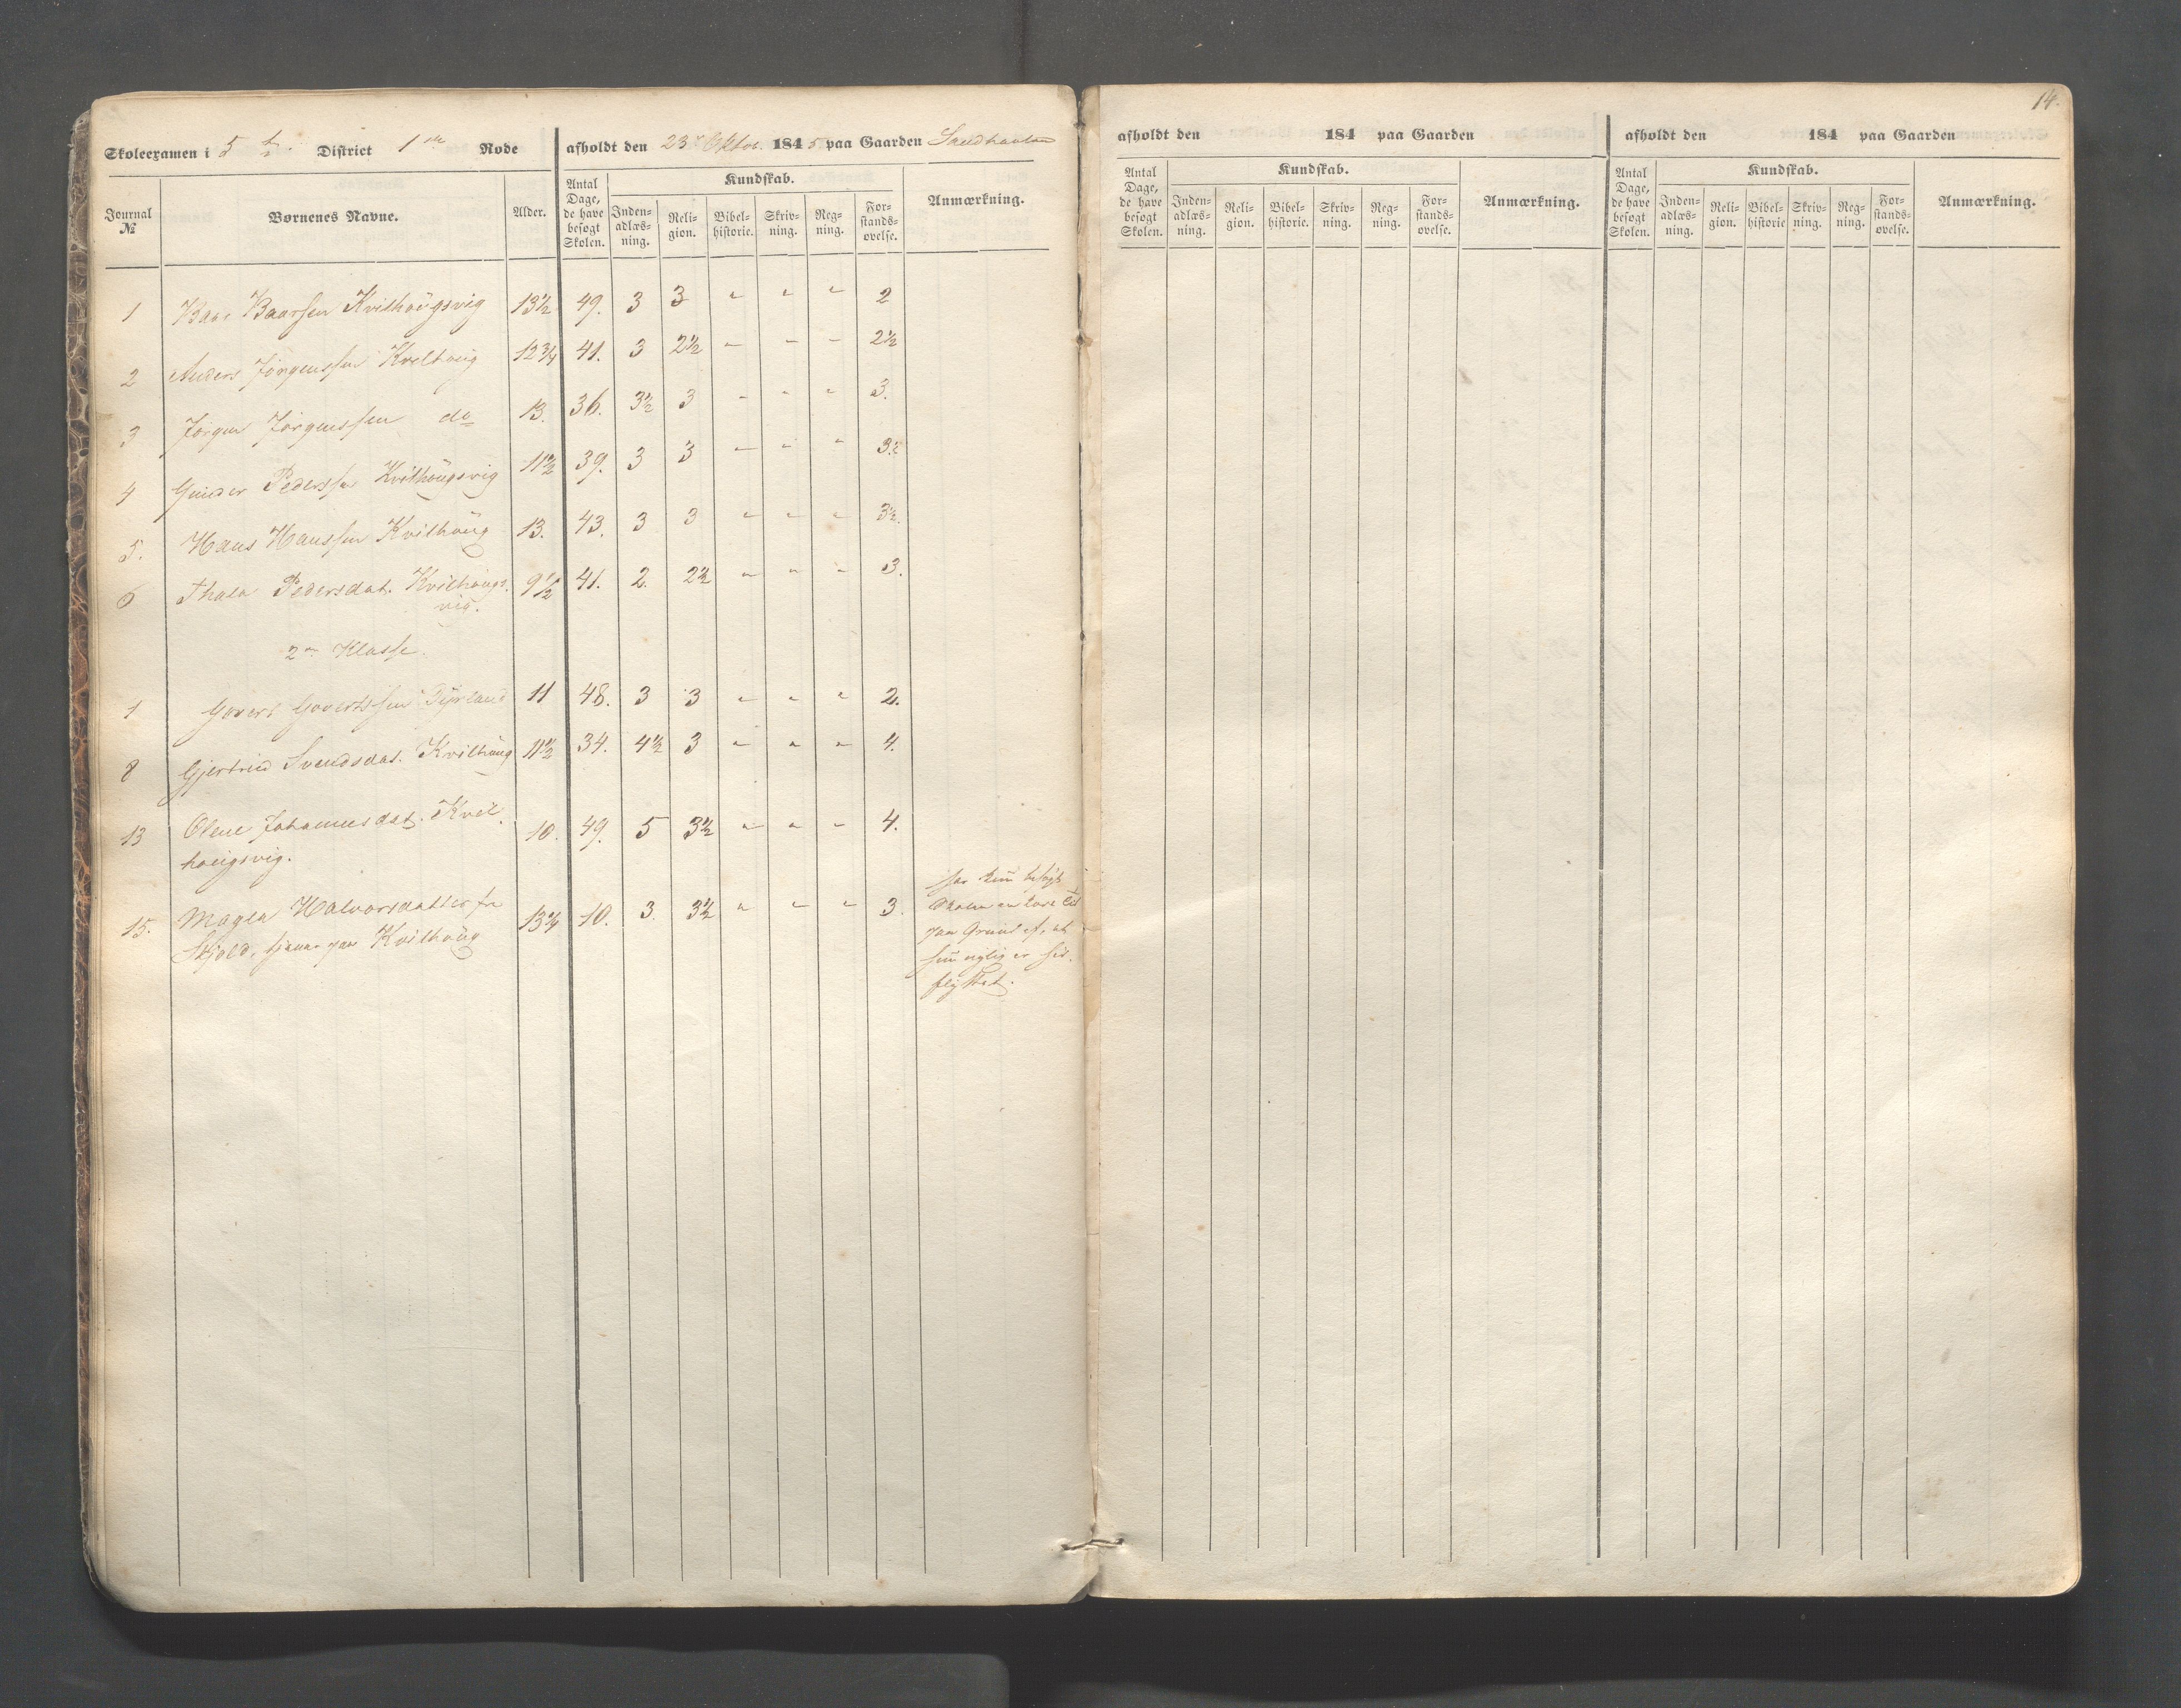 14.
Skoleexamen i 5te District 1ste Rode afholdt den 23de Oktbr. 1845 paa Gaarden Sandhaaland
Journal № Børnenes Navne. Alder. Antal Dage, de have besøgt Skolen. Kundskab. Indenadlæsning. Religion. Bibelhistorie. Skrivning. Regning. Forstandsøvelse. Anmærkning.
1 Baar Baarsen Kvilhougsvig 13½ 49. 3 3 " " " 2
2 Anders Jörgenssen Kvilhoug 12¾ 41. 3 2½ " " " 2½
3 Jörgen Jörgenssen do 13. 36. 3½ 3 " " " 3.
4 Gunder Pederssen Kvilhougsvig 11½ 39. 3 3 " " " 3½
5. Hans Hanssen Kvilhoug 13. 43. 3 3 " " " 3½.
6 Thala Pedersdat. Kvilhougs- 9½ 41. 2. 2½ " " " 3.
vig.
2den Klasse.
1 Govert Govertssen Tyrland 11 48. 3 3 " " " 2.
8 Gjertrud Svendsdat. Kvilhoug 11½ 34. 4½ 3 " " " 4.
13 Olene Johannesdat. Kvil- 10. 49. 5 3½ " " " 4.
hougsvig.
15. Magla Halvorsdatter fra 13¼ 10. 3. 3½ " " " 3.
Skjold, tjener paa Kvilhoug
har kun besögt
Skolen en kort Tid
paa Grund af, at
hun nylig er hid-
flyttet.
afholdt den 184 paa Gaarden
Antal Dage, de have besøgt Skolen. Kundskab. Indenadlæsning. Religion. Bibelhistorie. Skrivning. Regning. Forstandsøvelse. Anmærkning.
afholdt den 184 paa Gaarden
Antal Dage, de have besøgt Skolen. Kundskab. Indenadlæsning. Religion. Bibelhistorie Skrivning. Regning. Forstandsøvelse. Anmærkning.